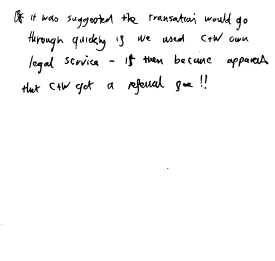 it was suggested the transation would go
through quickly if we used C+W own
legal service - it then became apparent
that C+W got a referral fee !!